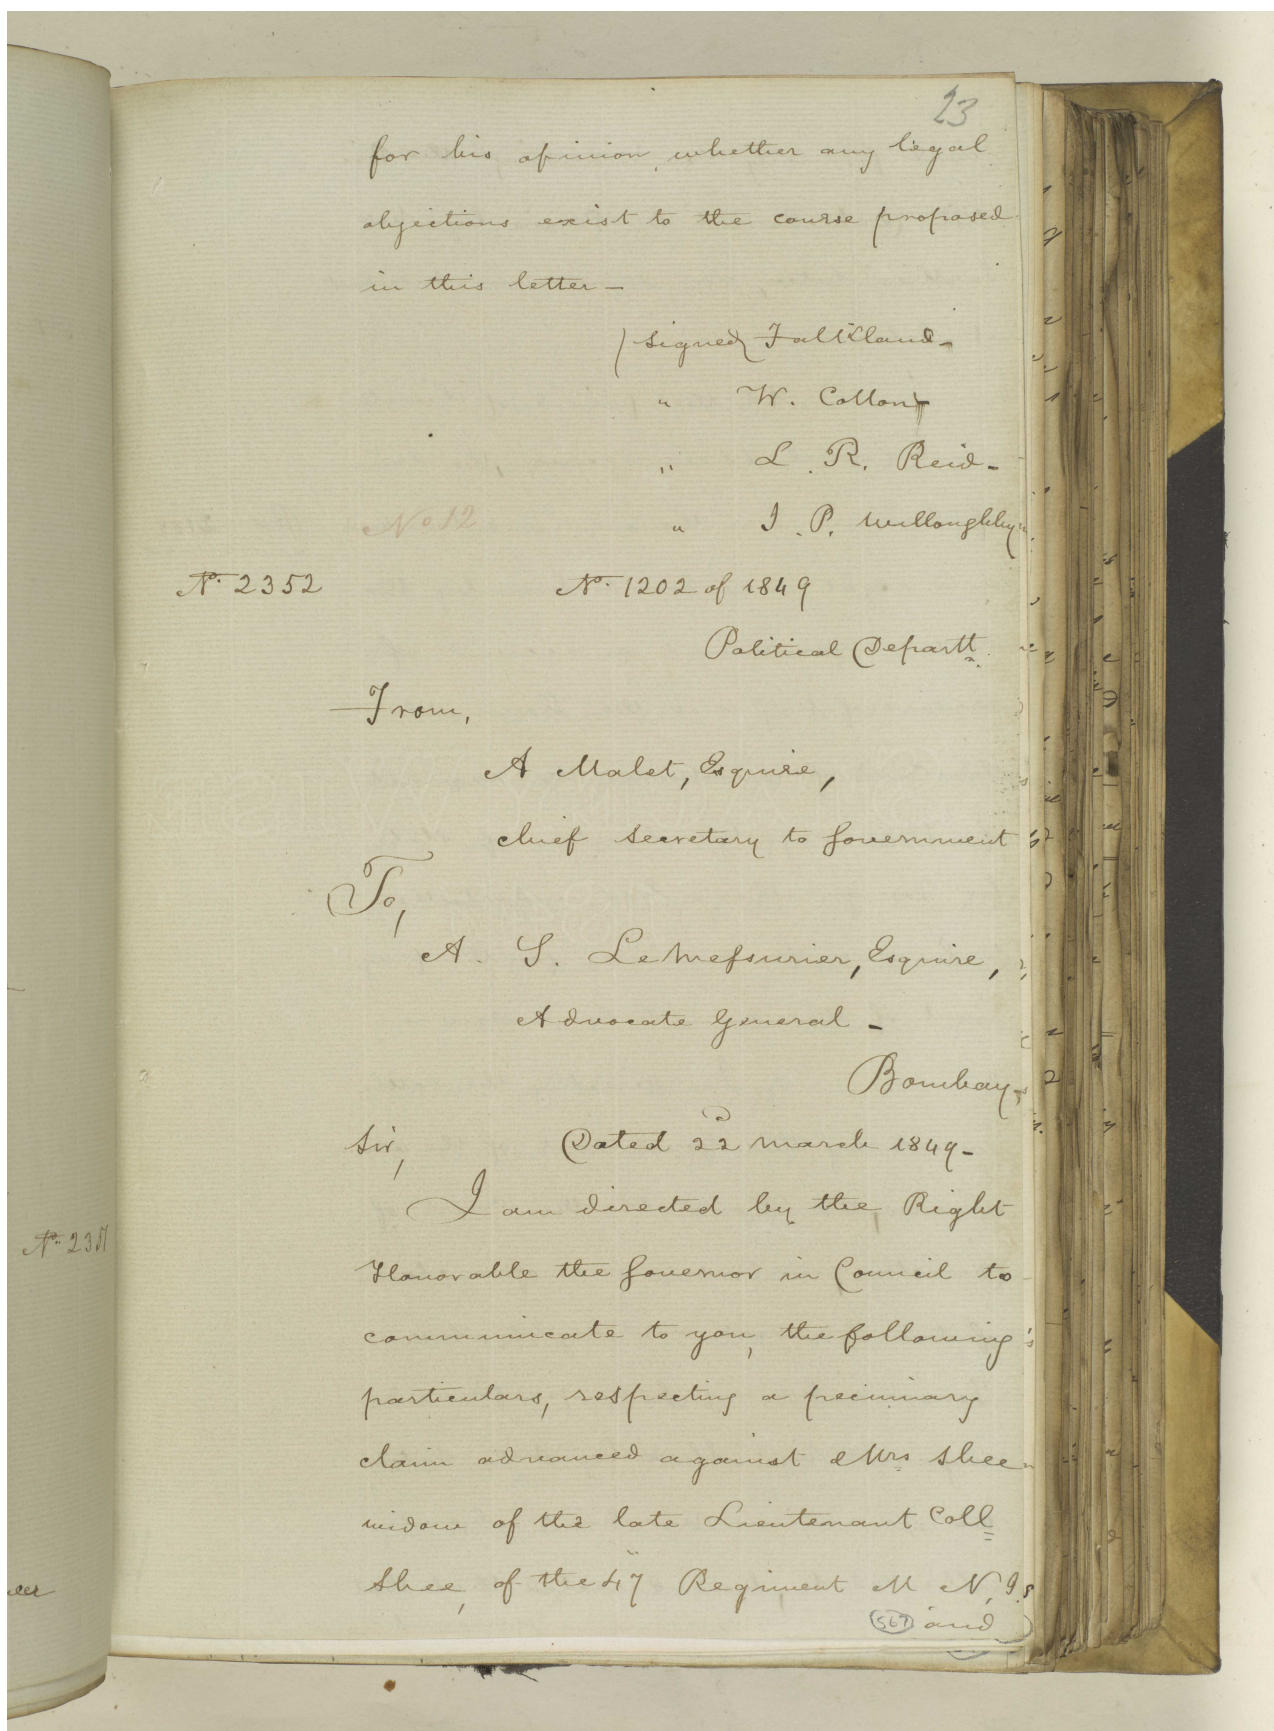 23
for his opinion, whether any legal
objections exist to the course proposed
in this letter—
(signed) Falkland—
" W. Cotton
" L. R. Reid—
No 12
" J. P. Willoughby
No. 2352
No. 1202 of 1849
Political Departt.
From,
A Malet, Esquire,
Chief Secretary to Government
To,
A. S. LeMessurier, Esquire,
Advocate General —
Bombay
Sir,
Dated 22d March 1849—
I am directed by the Right
Honorable the Governor in Council to
communicate to you, the following
particulars, respecting a pecuniary
claim advanced against Mrs Shee
widow of the late Lieutenant Coll
Shee, of the 47 Regiment M N, I.
(567) and